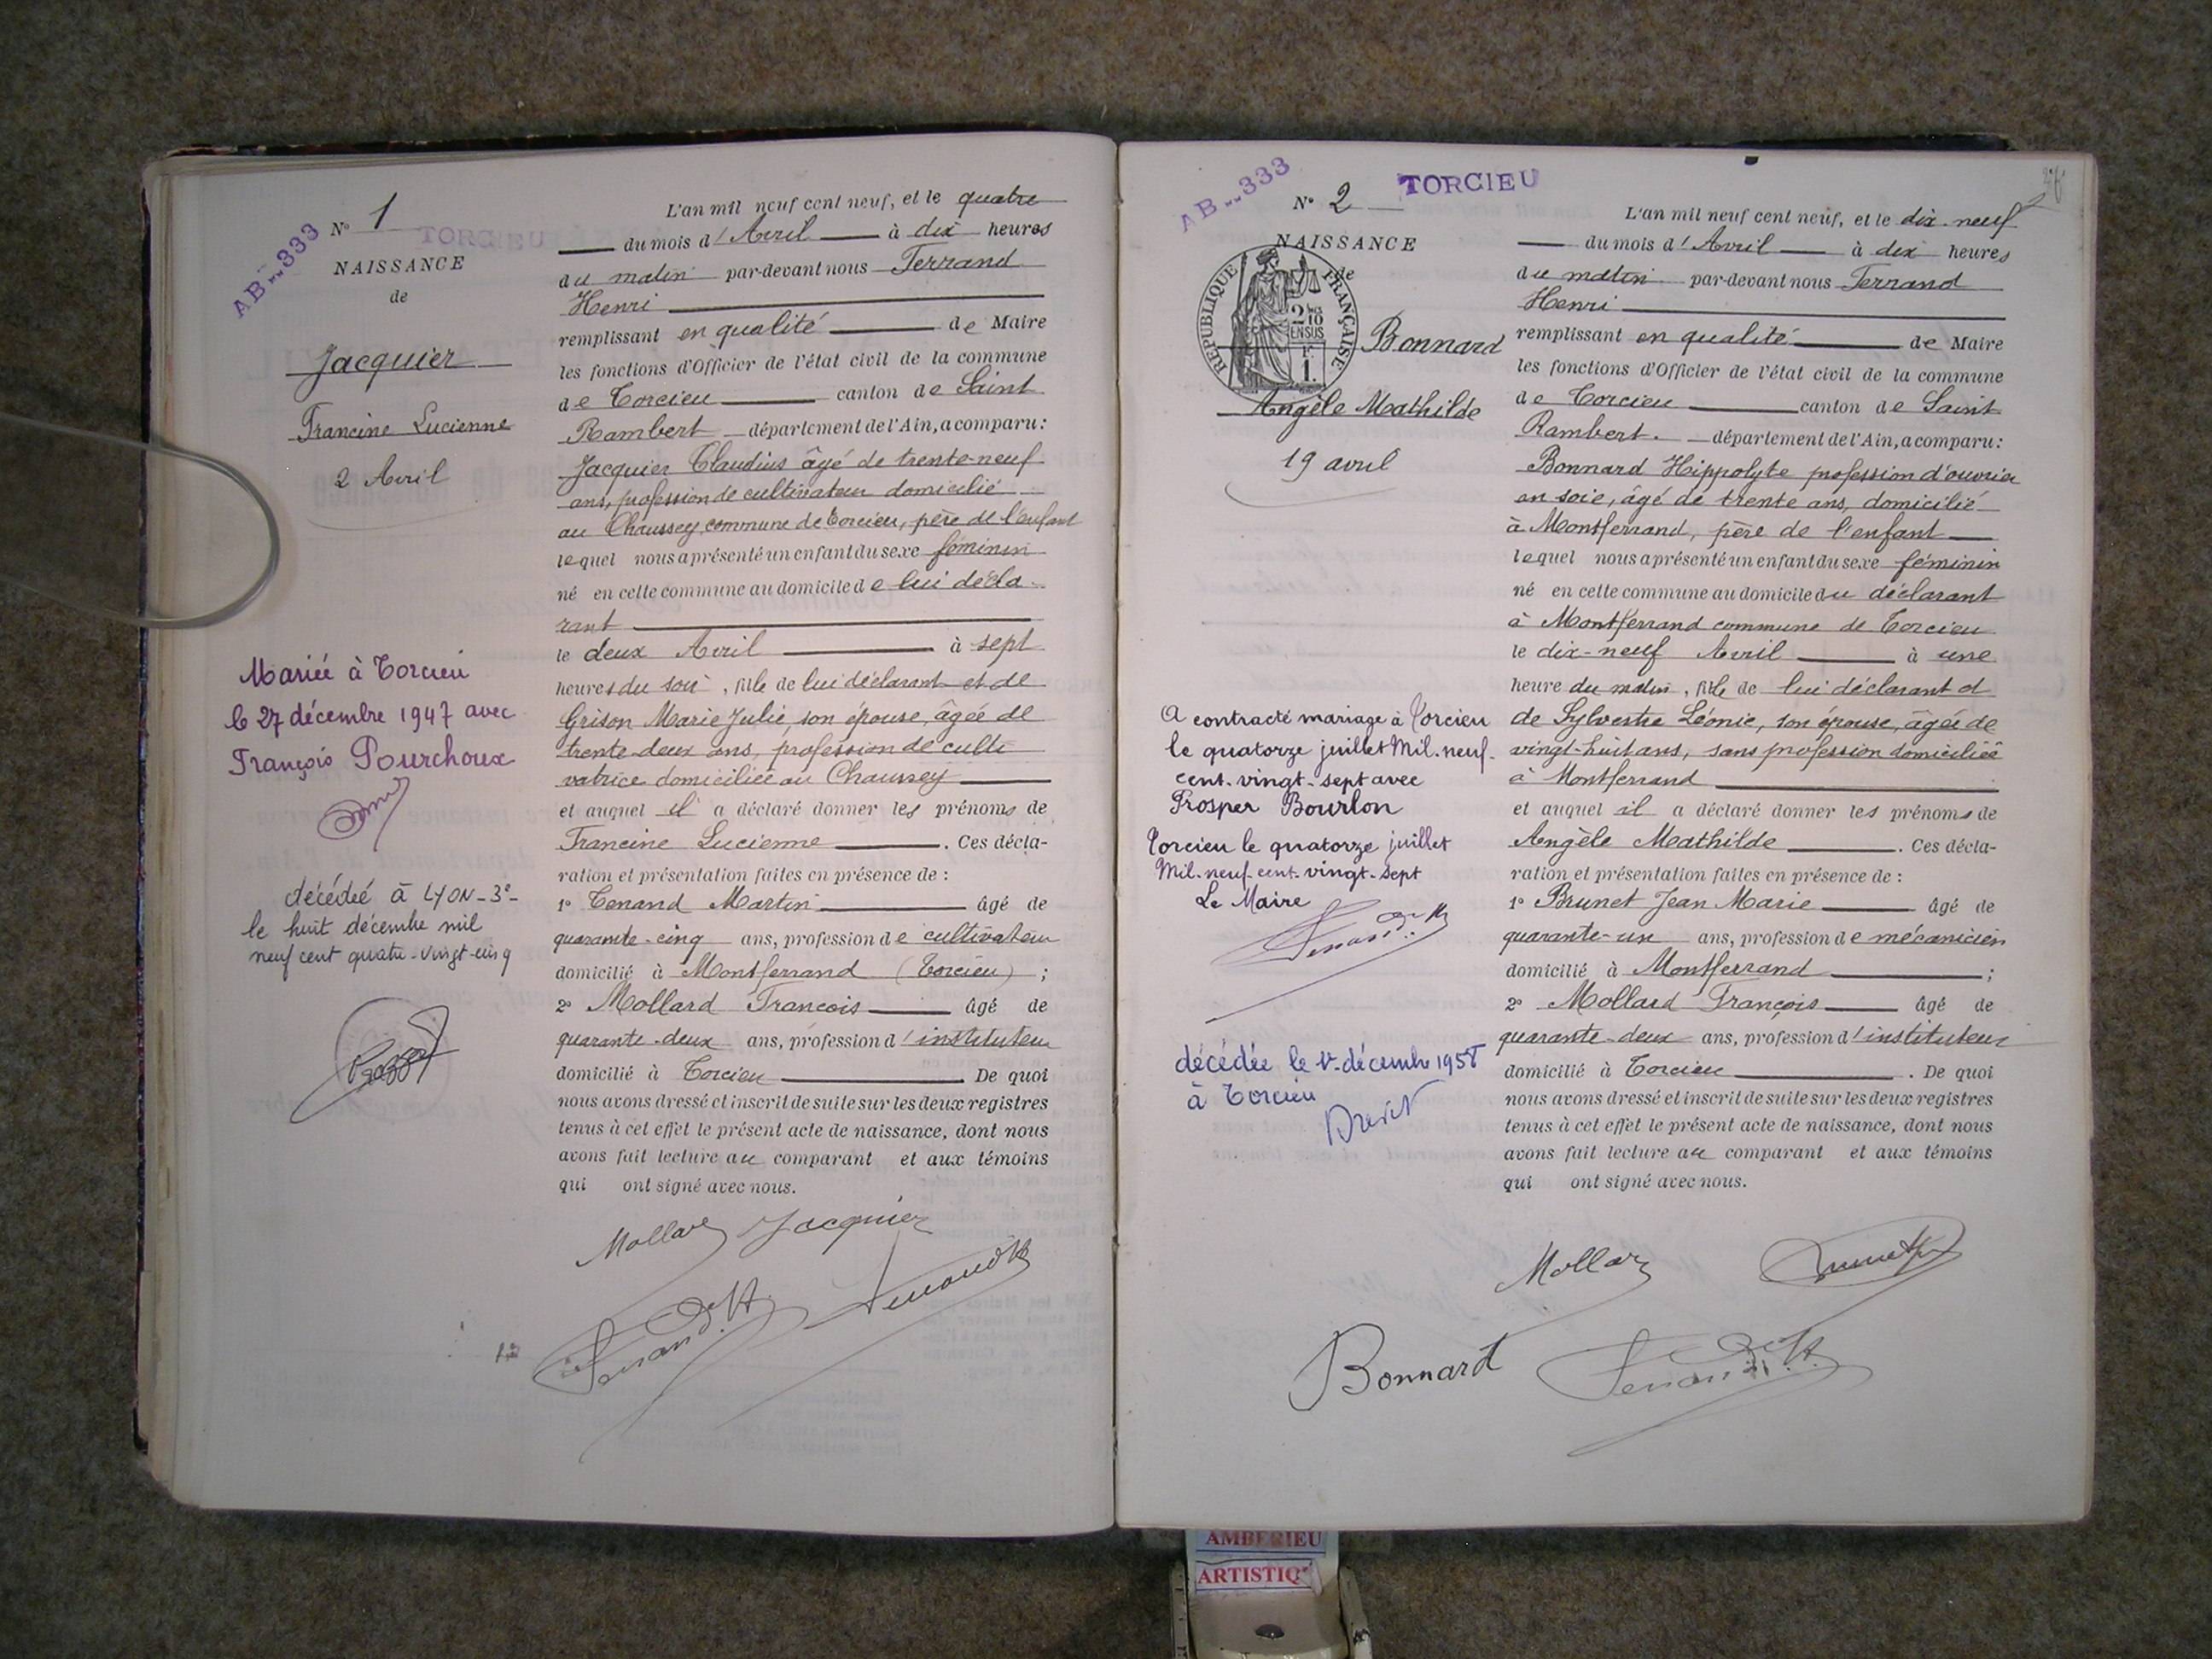 AB---333
N° 1
TORCIEU
NAISSANCE
de
Jacquier
Francine Lucienne
2 Avril
Mariée à Torcieu
le 27 décembre 1947 avec
François Pourchoux
décédée à LYON-3e-
le huit décembre mil
neuf cent quatre-vingt-cinq
L'an mil neuf cent neuf, et le quatre
du mois d'Avril à dix heures
du matin par-devant nous Ferrand
Henri
remplissant en qualité de Maire
les fonctions d'Officier de l'état civil de la commune
de Torcieu canton de Saint
Rambert département de l'Ain, a comparu :
Jacquier Claudius âgé de trente-neuf
ans, profession de cultivateur domicilié
au Chaussey, commune de Torcieu, père de l'enfant
lequel nous a présenté un enfant du sexe féminin
né en cette commune au domicile de lui décla-
rant
le deux Avril à sept
heures du soir, fille de lui déclarant et de
Grison Marie Julie, son épouse, âgée de
trente-deux ans, profession de culti
vatrice domiciliée au Chaussey
et auquel il a déclaré donner les prénoms de
Francine Lucienne. Ces décla-
ration et présentation faites en présence de :
1° Tenand Martin âgé de
quarante-cinq ans, profession de cultivateur
domicilié à Montferrand (Torcieu) ;
2° Mollard François âgé de
quarante-deux ans, profession d'instituteur
domicilié à Torcieu De quoi
nous avons dressé et inscrit de suite sur les deux registres
tenus à cet effet le présent acte de naissance, dont nous
avons fait lecture au comparant et aux témoins
qui ont signé avec nous.
Mollard Jacquier
AB---333
N° 2
TORCIEU
NAISSANCE
de
RÉPUBLIQUE FRANÇAISE
2/10
EN SUS
1.
Bonnard
Angèle Mathilde
19 avril
A contracté mariage à Torcieu
le quatorze juillet Mil-neuf-
cent-vingt-sept avec
Prosper Bourlon
Torcieu le quatorze juillet
Mil-neuf-cent-vingt-sept
Le Maire
décédée le décembre
à Torcieu
L'an mil neuf cent neuf, et le dix-neuf
du mois d'Avril à dix heures
du matin par-devant nous Ferrand
Henri
remplissant en qualité de Maire
les fonctions d'Officier de l'état civil de la commune
de Torcieu canton de Saint
Rambert. département de l'Ain, a comparu :
Bonnard Hippolyte profession d'ouvrier
en soie, âgé de trente ans, domicilié
à Montferrand, père de l'enfant
lequel nous a présenté un enfant du sexe féminin
né en cette commune au domicile du déclarant
à Montferrand commune de Torcieu
le dix-neuf Avril à une
heure du matin, fille de lui déclarant et
de Sylvestre Léonie, son épouse, âgée de
vingt-huit ans, sans profession domiciliée
à Montferrand
et auquel il a déclaré donner les prénoms de
Angèle Mathilde. Ces décla-
ration et présentation faites en présence de :
1° Brunet Jean Marie âgé de
quarante-un ans, profession de mécanicien
domicilié à Montferrand ;
2° Mollard François âgé de
quarante-deux ans, profession d'instituteur
domicilié à Torcieu. De quoi
nous avons dressé et inscrit de suite sur les deux registres
tenus à cet effet le présent acte de naissance, dont nous
avons fait lecture au comparant et aux témoins
qui ont signé avec nous.
Mollard
Bonnard
AMBERIEU
ARTISTIQ